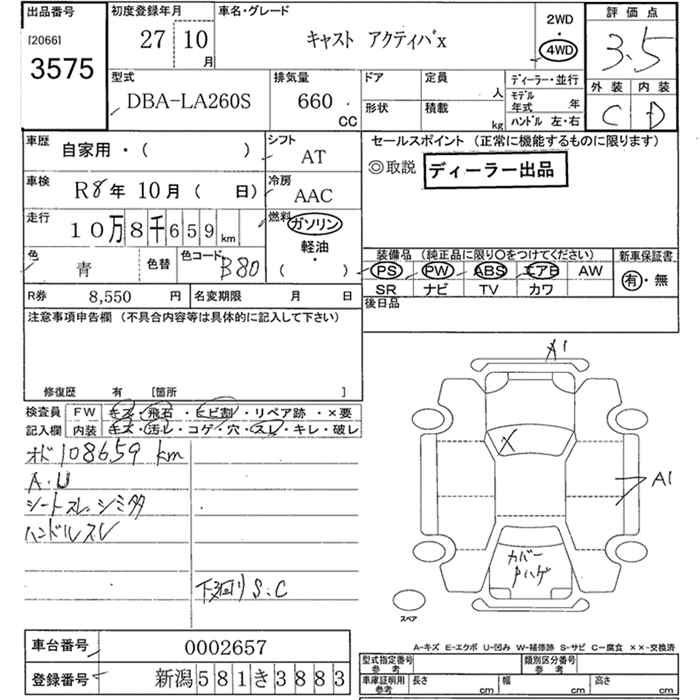 出品番号
[2066]
3575
初度登録年月
27 10 月
車名・グレード
キャスト アクティバX
2WD
・
4WD
評価点
3.5
外装 内装
C D
型式
DBA-LA260S
排気量
660
CC
ドア
定員
人
形状
積載
kg
ディーラー・並行
モデル
年式 年
ハンドル 左・右
車歴
自家用・( )
シフト
AT
車検
R8年10月( 日)
冷房
AAC
走行
10万8千659
km
燃料
ガソリン
軽油・
( )
色
青
色替
色コード
B80
R券 8,550 円
名変期限 月 日
セールスポイント (正常に機能するものに限ります)
◎取説 ディーラー出品
装備品 (純正品に限り○をつけてください)
PS PW ABS エアB AW
SR ナビ TV カワ
新車保証書
有・無
後日品
注意事項申告欄 (不具合内容等は具体的に記入して下さい)
修復歴 有 [箇所 ]
検査員
記入欄
FW キズ・飛石・ヒビ割・リペア跡・×要
内装 キズ・汚レ・コゲ・穴・スレ・キレ・破レ
オド108659 km
A.U
シートスレ、シミ多
ハンドルスレ
下廻りS.C
A1
X
A1
カバー
Pハゲ
スペア
A-キズ E-エクボ U-凹み W-補修跡 S-サビ C-腐食 ××-交換済
車台番号 0002657
登録番号 新潟581き3883
型式指定番号
参考
類別区分番号
参考
車庫証明用
参考
長さ cm
幅 cm
高さ cm